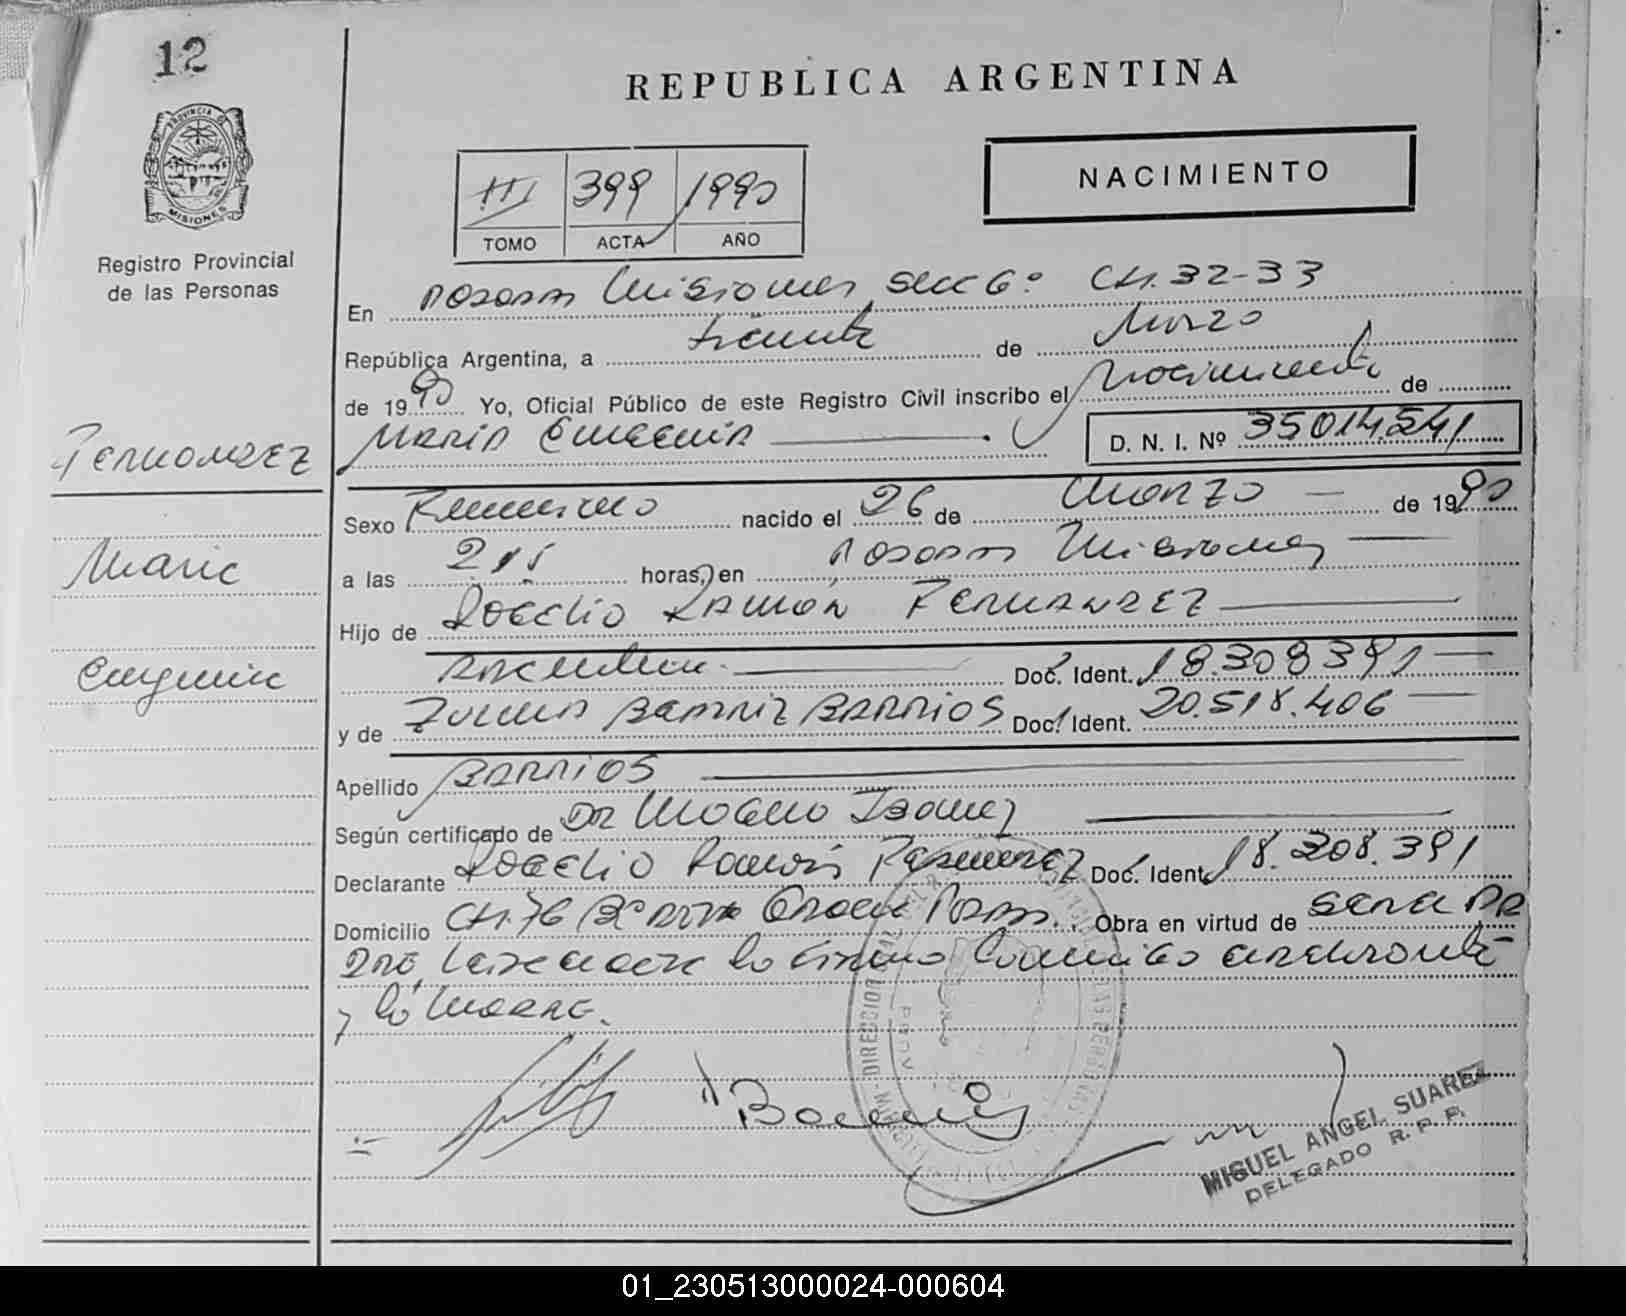 12
PROVINCIA DE
MISIONES
Registro Provincial
de las Personas
REPUBLICA ARGENTINA
III 399 1990
TOMO ACTA AÑO
NACIMIENTO
En Posadas Misiones secc 6º CH. 32-33
República Argentina, a treinta de Marzo
de 1990 Yo, Oficial Público de este Registro Civil inscribo el Nacimiento de
Maria Eugenia D. N. I. Nº 35014.541
Fernandez
Maria
Eugenia
Sexo Femenino nacido el 26 de Marzo de 1990
a las horas, en Posadas Misiones
Hijo de Rogelio Ramón Fernandez
Argentino Doc. Ident. 18.308391
y de Zulma Beatriz Barrios Doc. Ident. 20.518.406
Apellido Barrios
Según certificado de Dr
Declarante Rogelio Ramón Fernandez Doc. Ident. 18.308.391
Domicilio CH. 76 Obra en virtud de ser el pa
dre, conmigo el declarante
y la Madre.
MIGUEL ANGEL SUAREZ
DELEGADO R. P. P.
01_230513000024-000604